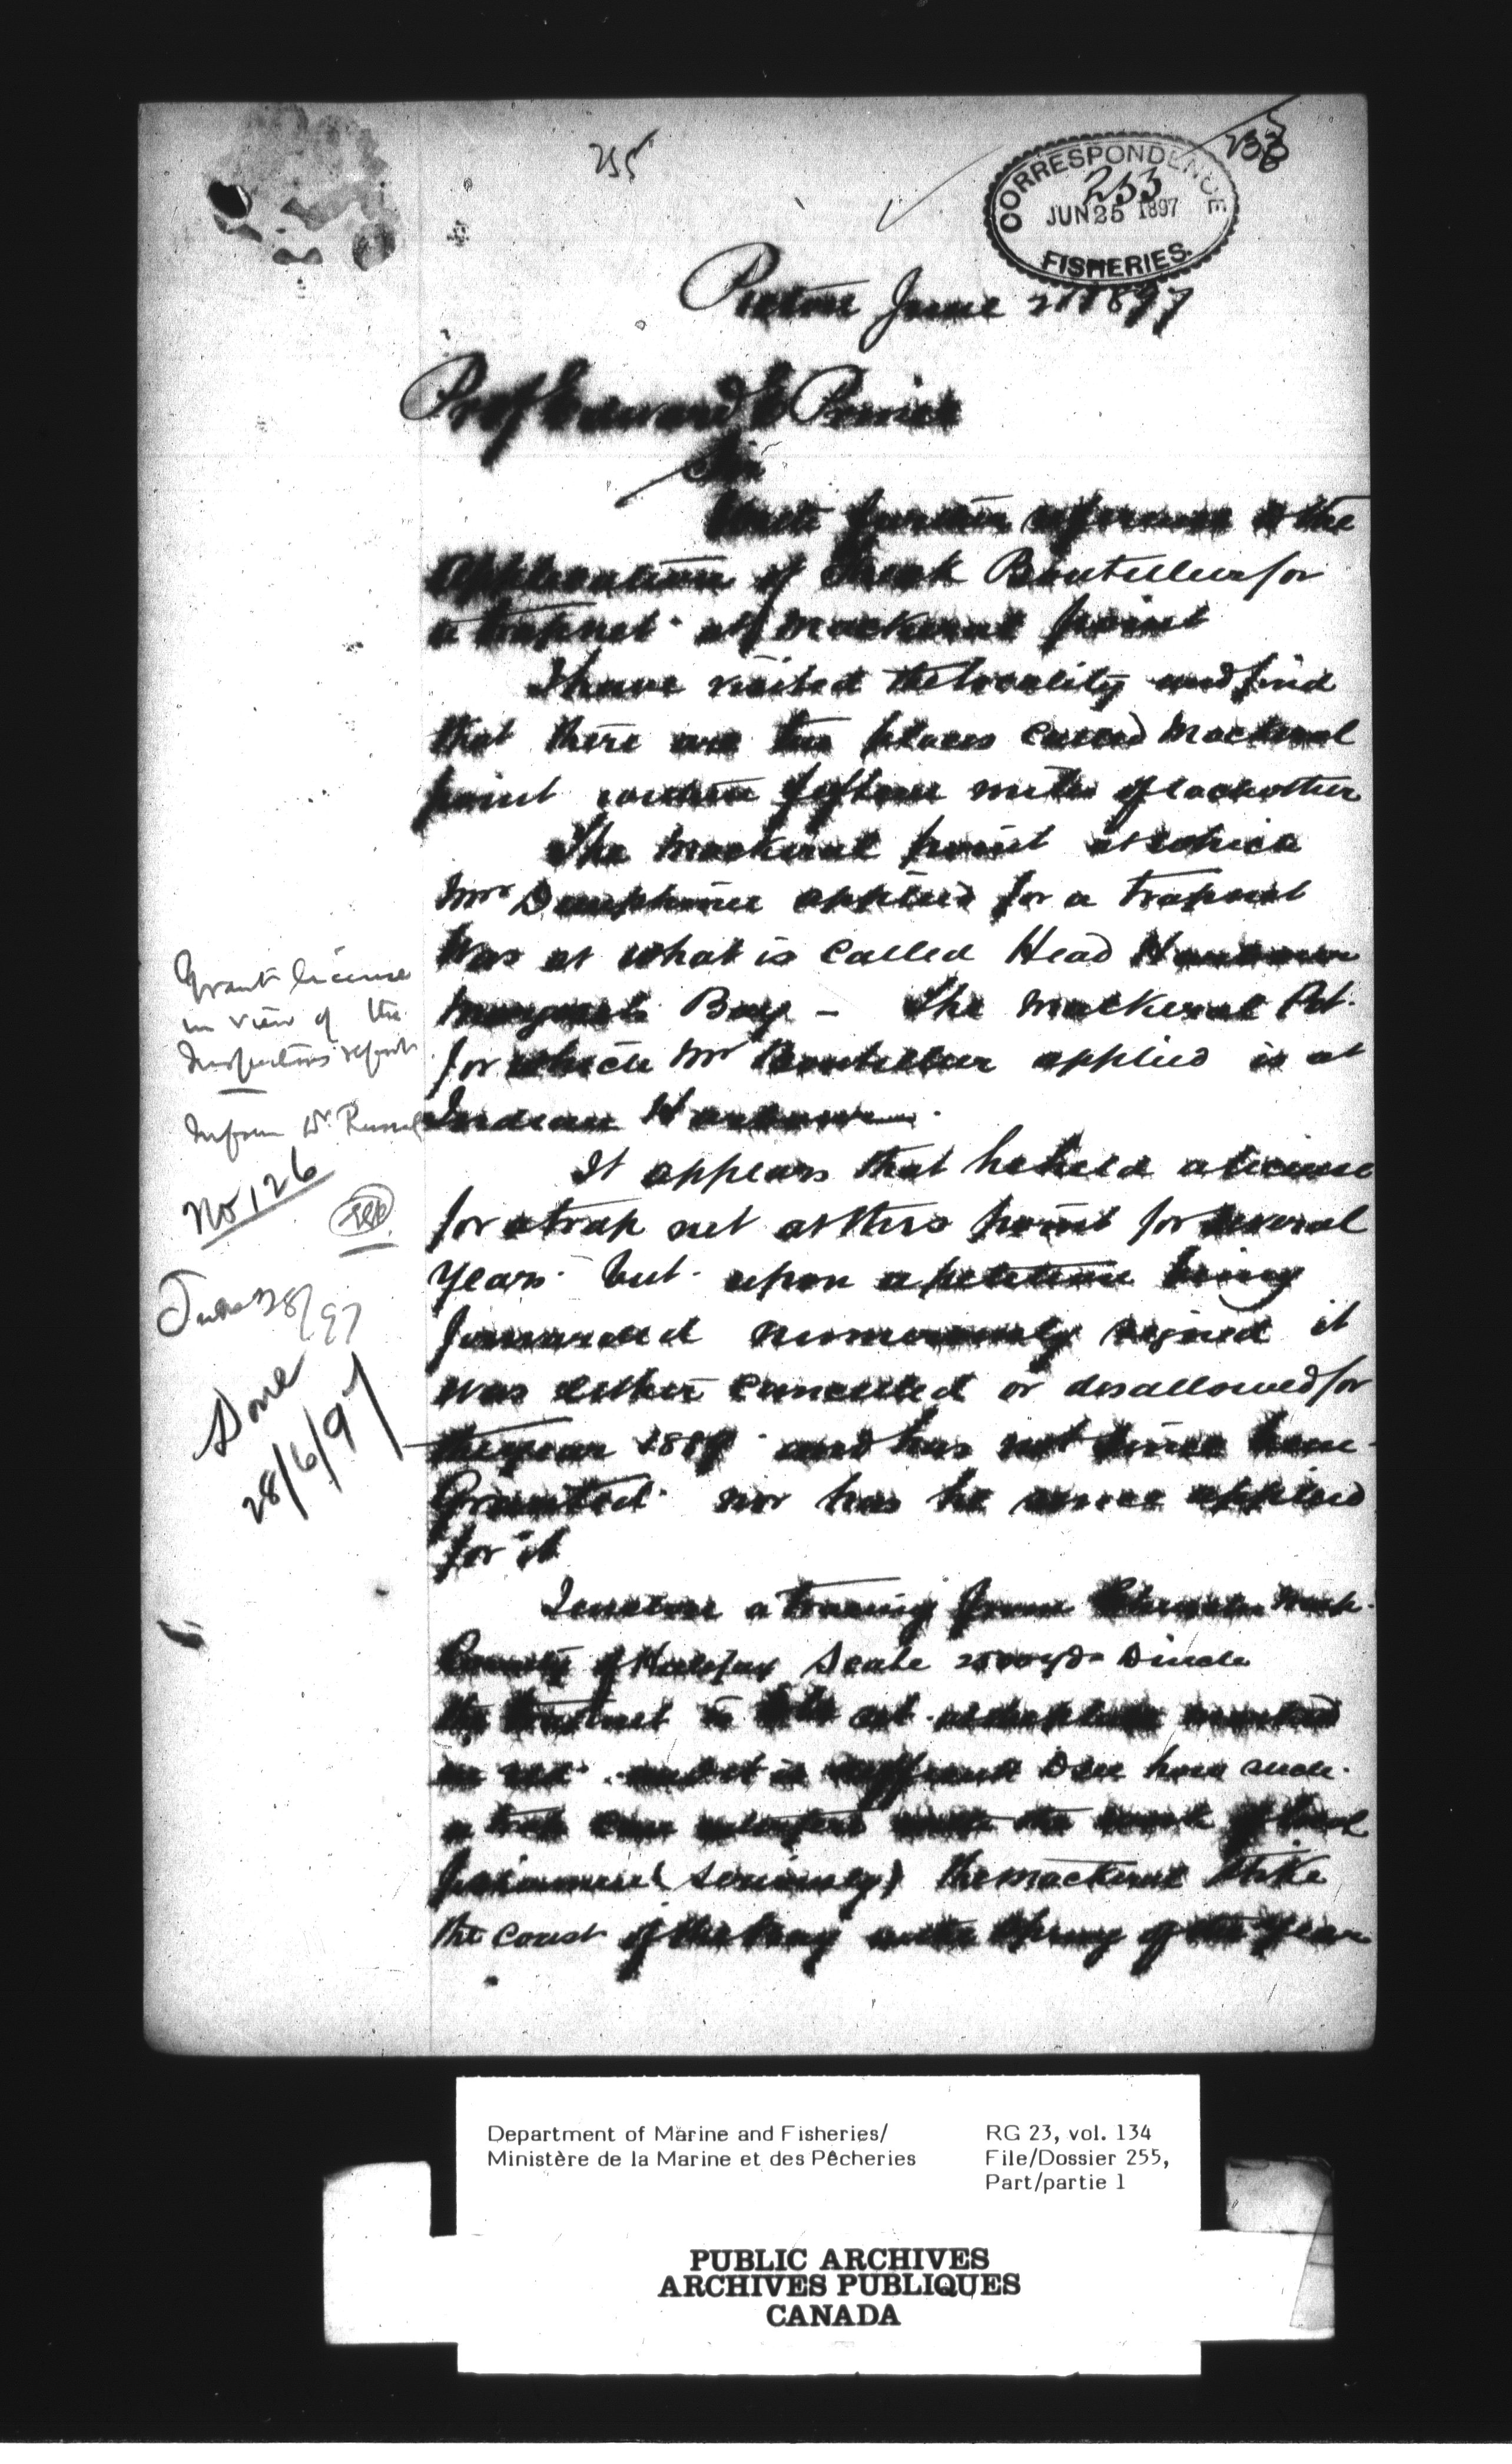 255
CORRESPONDENCE
253
JUN 25 1897
FISHERIES.
Pictou June 21 1897
Prof Edward E Prince
Sir
With further reference to the
Application of Frank Boutillier for
a trapnet at Mackeral point
I have visited the locality and find
that there are two places called Mackeral
point within fifteen miles of each other
The Mackeral point at which
Mr Dauphinee applied for a trapnet
Was at what is called Head Harbour
Margarets Bay - The Mackeral Pt.
for which Mr Boutillier applied is at
Indian Harbour.
It appears that he held a license
for a trap net at this point for several
years but upon a petition being
forwarded numerously signed it
was either cancelled or disallowed for
the year 1889 and has not since been
Granted nor has he since applied
for it
I enclose a tracing from Church's Map
County of Halifax Scale
the trapnet is to be set at the place marked
in red and it is difficult to see how such
a trap can interfere with the work of
fishermen (seriously) the mackeral strike
the coast of the bay in the Spring of the year
Grant license
in view of the
Inspectors report
Inform Dr. Russell
No 126
June 28/97
Done
28/6/97
Department of Marine and Fisheries/
Ministère de la Marine et des Pêcheries
RG 23, vol. 134
File/Dossier 255,
Part/partie 1
PUBLIC ARCHIVES
ARCHIVES PUBLIQUES
CANADA